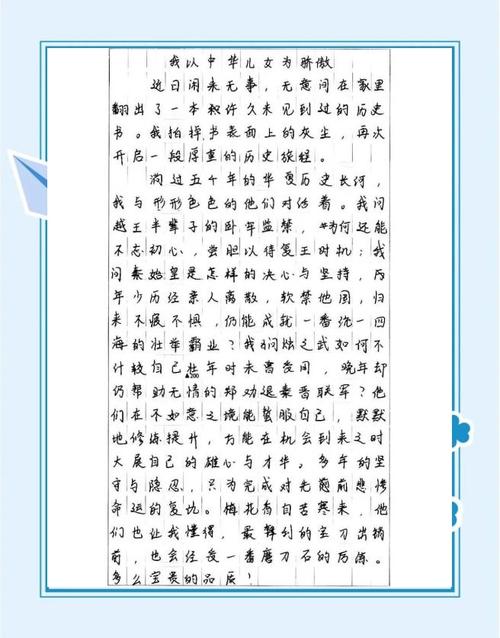 我以中华儿女为骄傲
近日闲来无事，无意间在家里
翻出了一本积许久未见到过的历史
书。我拍掉书表面上的灰尘，再次
开启一段厚重的历史旅程。
淌过五千年的华夏历史长河，
我与形形色色的他们对话着。我问
越王半辈子的卧牢监禁，为何还能
不忘初心，尝胆以待复王时机；我
问秦始皇是怎样的决心与坚持，历
年少历经亲人离散，软禁他国，归
来不疲不惧，仍能成就一番统一四
海的壮举霸业？我问烛之武如何不
计较自己壮年时未曾受用，晚年却
▲200
仍帮助无情的郑劝退秦晋联军？他
们在不如意之境能蛰服自己，默默
地修炼提升，方能在机会到来之时
大展自己的雄心与才华。多年的坚
守与隐忍，只为完成对先前悲惨
命运的复仇。梅花香自苦寒来，他
们也让我懂得，最犀利的宝刀出鞘
前，也会经受一番磨刀石的历练。
多么宝贵的品质！